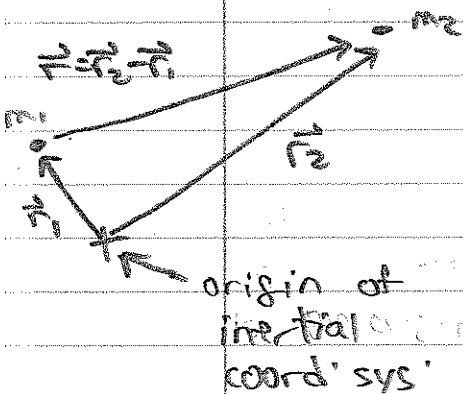 m₂
r⃗ = r⃗₂ - r⃗₁
m₁
r⃗₂
r⃗₁
origin of
inertial
coord' sys'